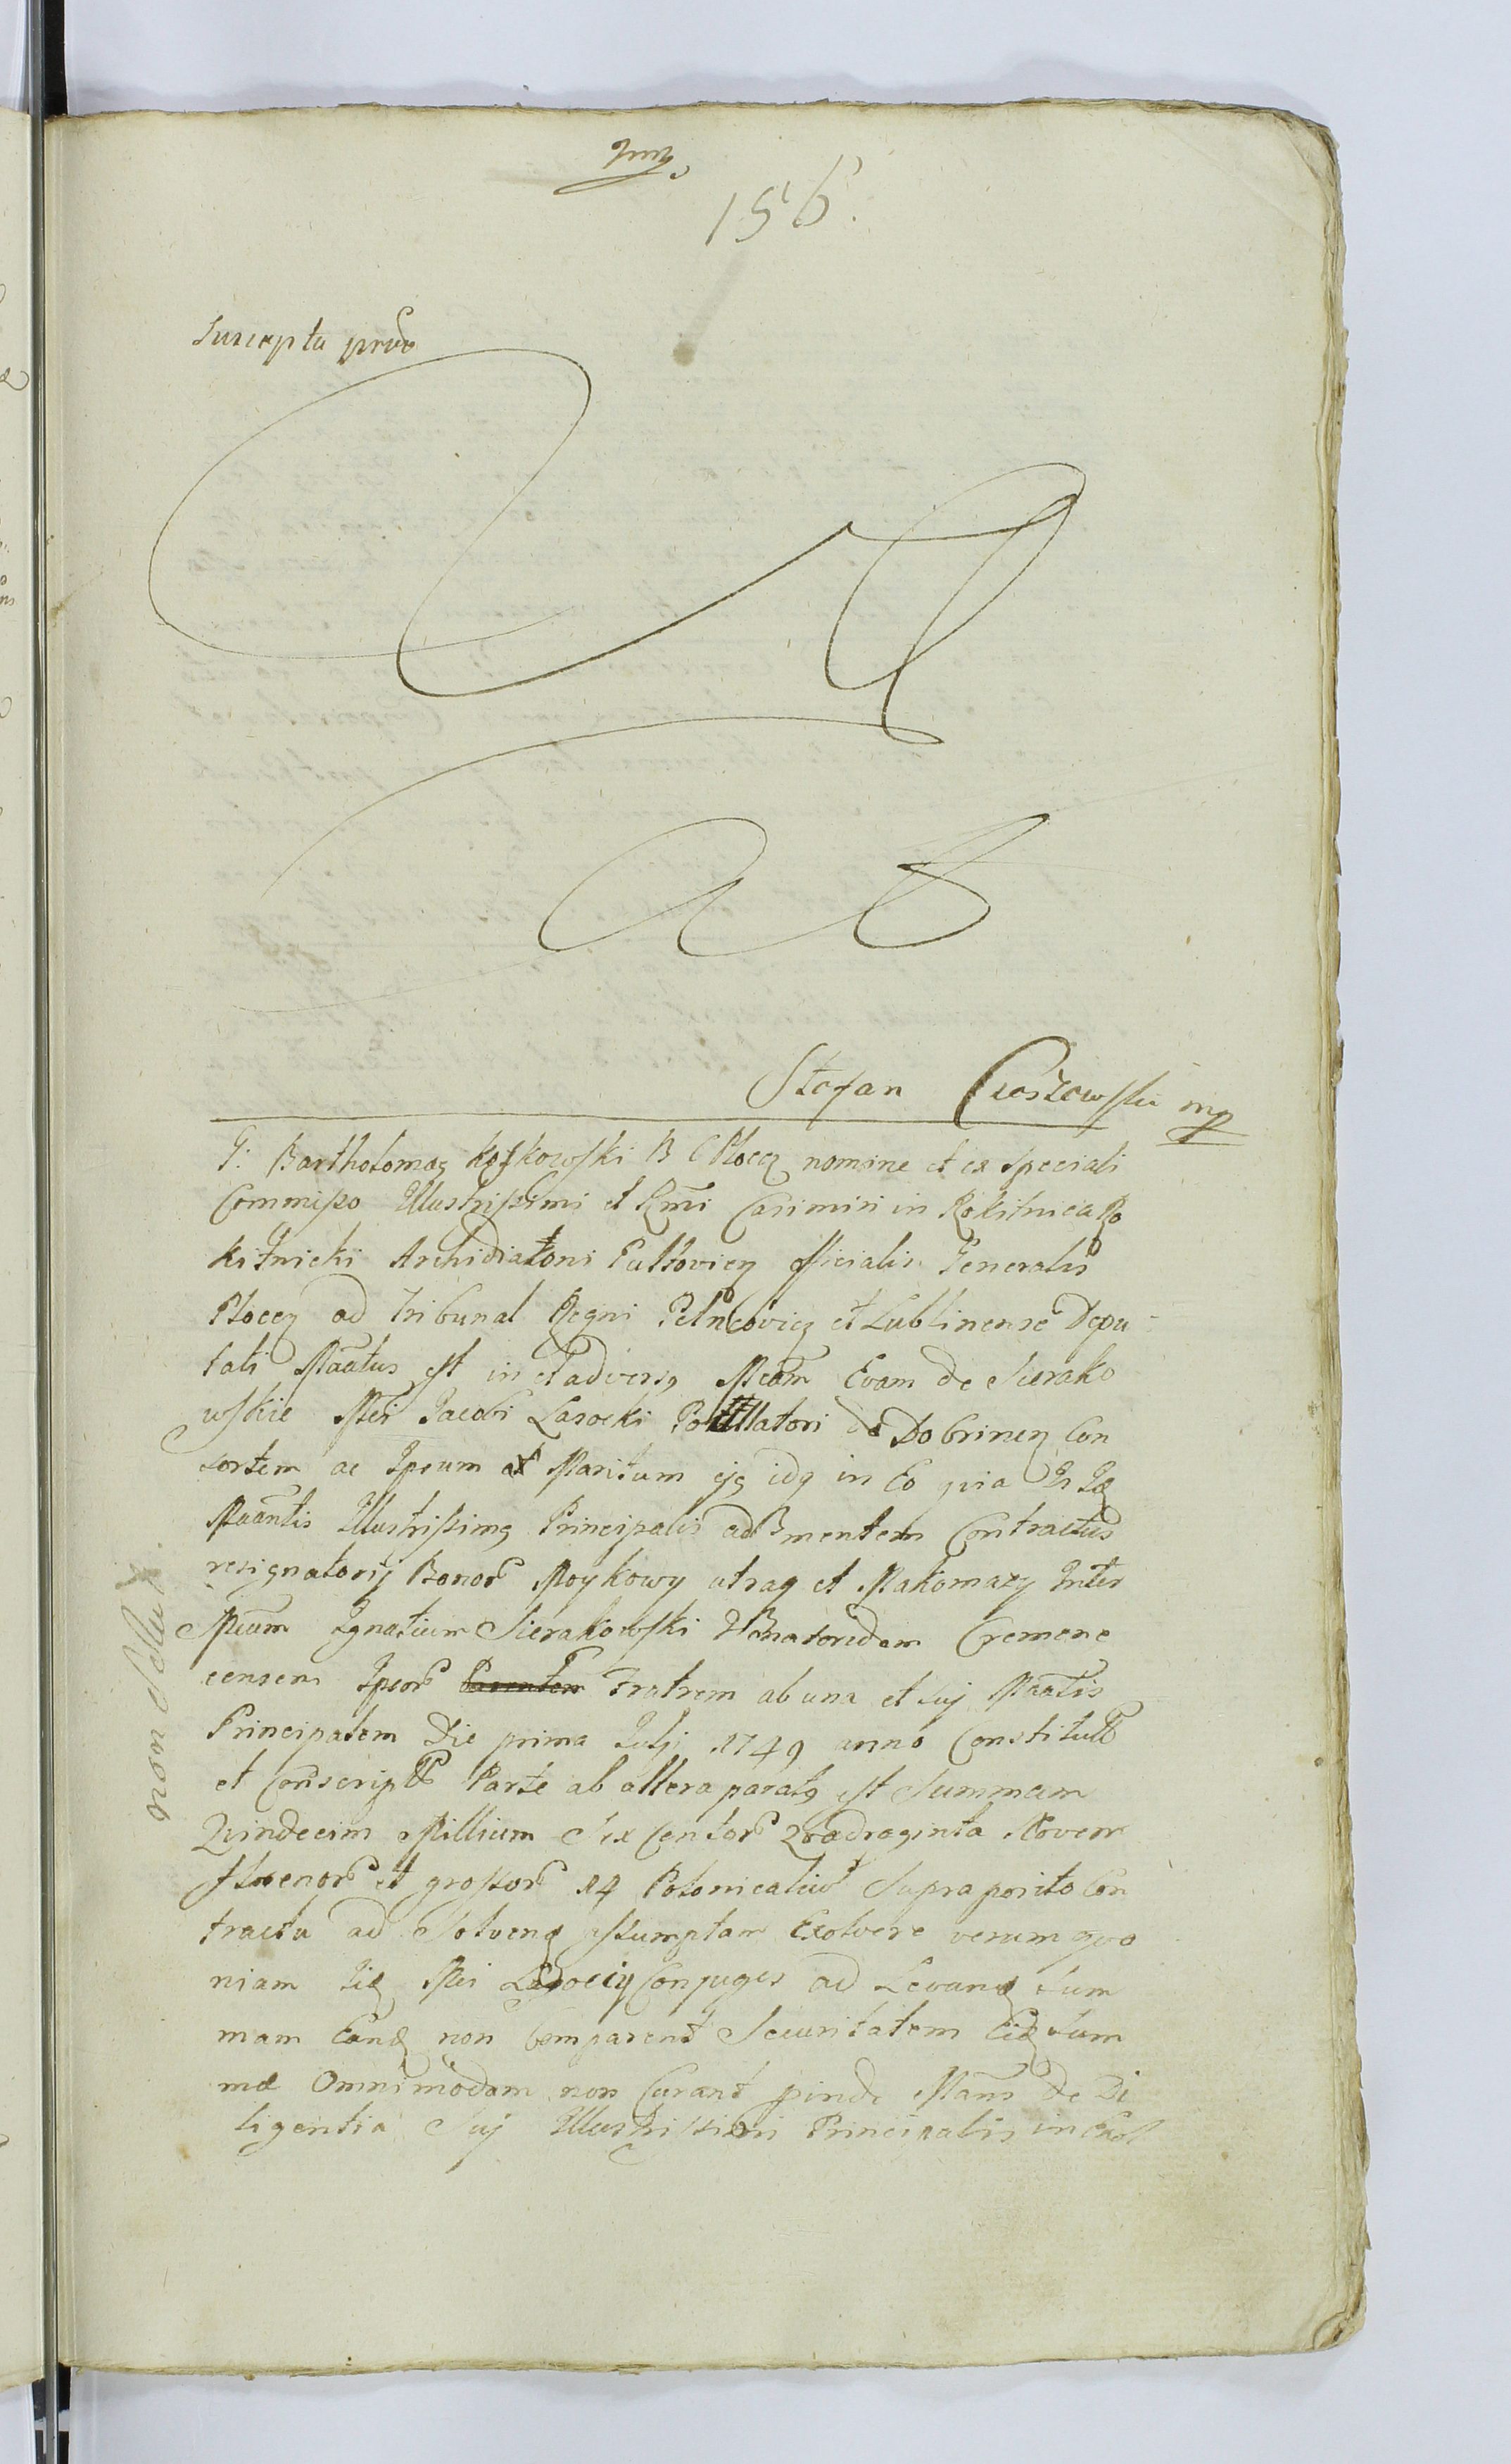 156.
Suscepta
Stefan mp
G: Bartholomaeus Koskowski B C Plocen nomine et ex speciali
Commisso Illustrissimi et Rmi Casimiri in Rokitnica Ro
kitnicki Archidiaconi Pultovien officialis Generalis
Plocen ad Tribunal Regni Petricovien et Lublinense Depu
tati est in et adversus Evam de Sierako
wskie Jacobi Lasocki Dobrinen Con
sortem ac Ipsum Maritum ejus idq in Eo quia
Illustrissimus Principalis ad mentem Contractus
resignatorij Bonor Moykowy utraq et Makomazy Inter
Ignatium Sierakowski Cremene
censem Ipsor Fratrem ab una et Suj
Principalem Die prima Julij 1749 anno Constitut
et Conscript Parte ab altera paratus est Summam
Quindecim Millium Sex Centor Quadraginta Novem
florenor et grossor 14 Polonicaliu Supraposito Con
tractu ad Solvend assumptam Exolvere verum quo
niam Conjuges ad Levand Sum
mam Eand non Comparent Securitatem Eid Sum
mae Omnimodam non Curant proinde de Di
ligentia Suj Illustrissimi Principalis in
non Solut